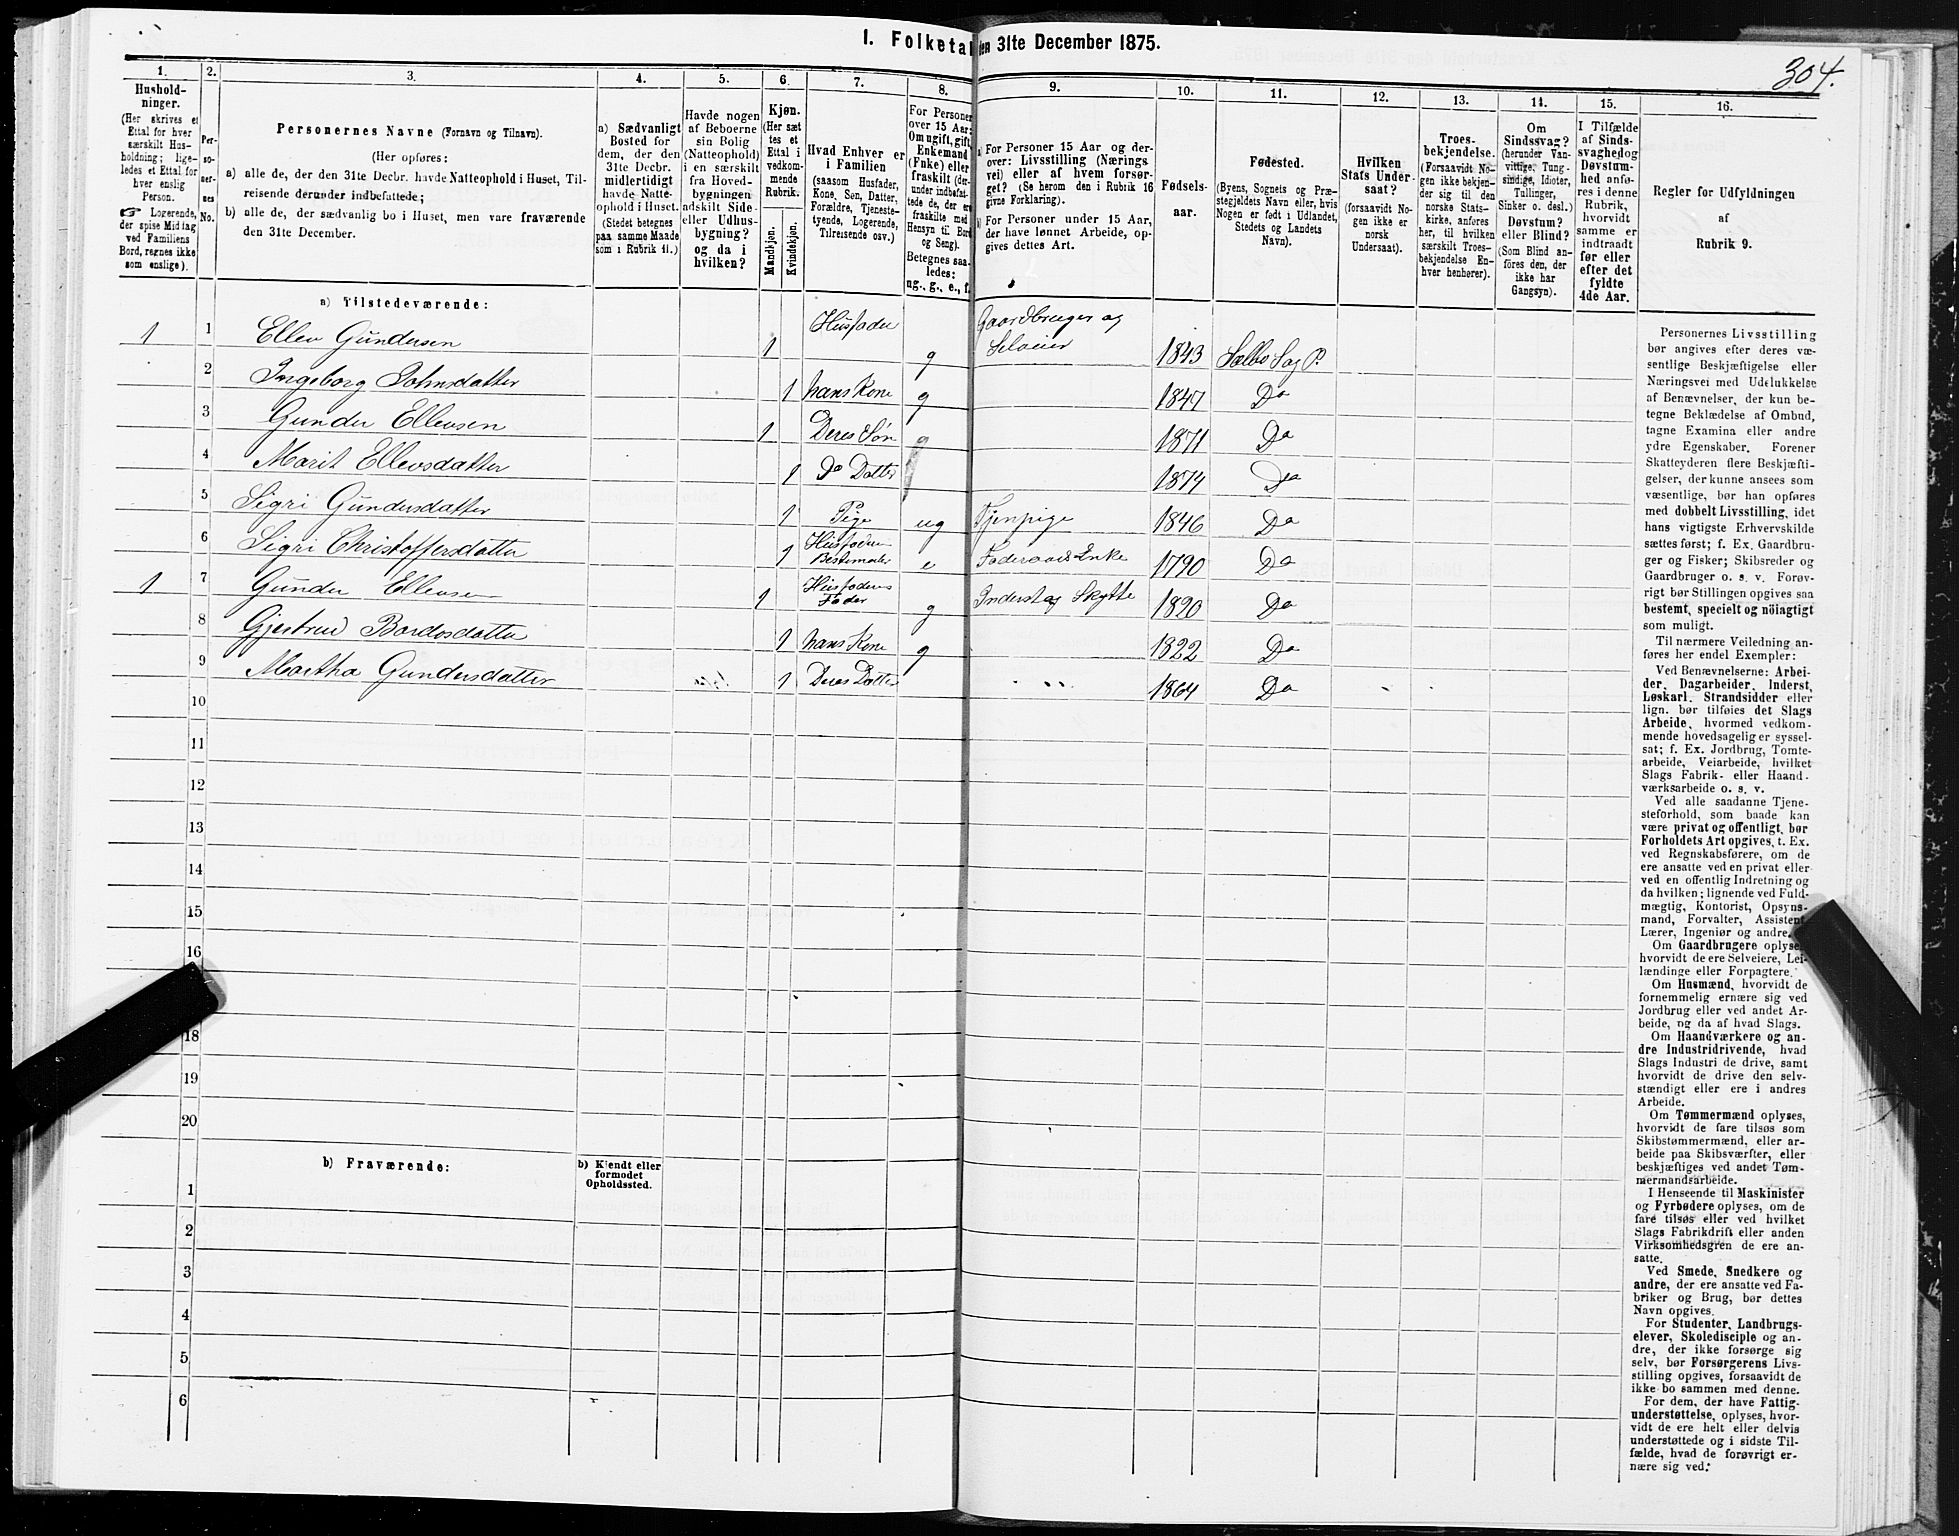 1. Folketal den 31te December 1875.
304.
1.
2.
3.
4.
5.
6
7.
8.
9.
10.
11.
12.
13.
14.
15.
16.
Hushold-
ninger.
(Her skrives et
Ettal for hver
særskilt Hus-
holdning; lige-
ledes et Ettal for
hver enslig
Person.
☞ Logerende,
der spise Middag
ved Familiens
Bord, regnes ikke
som enslige).
Per-
so-
ner-
nes
No.
Personernes Navne (Fornavn og Tilnavn).
(Her opføres:
a) alle de, der den 31te Decbr. havde Natteophold i Huset, Til-
reisende derunder indbefattede;
b) alle de, der sædvanlig bo i Huset, men vare fraværende
den 31te December.
a) Sædvanligt
Bosted for
dem, der den
31te Decbr.
midlertidigt
havde Natte-
ophold i Huset.
(Stedet betegnes
paa samme Maade
som i Rubrik 11.)
Havde nogen
af Beboerne
sin Bolig
(Natteophold)
i en særskilt
fra Hoved-
bygningen
adskilt Side-
eller Udhus-
bygning?
og da i
hvilken?
Kjøn.
(Her sæt-
tes et
Ettal i
vedkom-
mende
Rubrik.
Mandkjøn.
Kvindekjøn.
Hvad Enhver er
i Familien
(saasom Husfader,
Kone, Søn, Datter,
Forældre, Tjeneste-
tyende, Logerende,
Tilreisende osv.)
For Personer
over 15 Aar:
Om ugift, gift,
Enkemand
(Enke) eller
fraskilt (der-
under indbefat-
tede de, der ere
fraskilte med
Hensyn til Bord
og Seng).
Betegnes saa-
ledes:
ug., g., e., f.
a) For Personer 15 Aar og der-
over: Livsstilling (Nærings-
vei) eller af hvem forsør-
get? (Se herom den i Rubrik 16
givne Forklaring).
b) For Personer under 15 Aar,
der have lønnet Arbeide, op-
gives dettes Art.
Fødsels-
aar.
Fødested.
(Byens, Sognets og Præ-
stegjeldets Navn eller, hvis
Nogen er født i Udlandet,
Stedets og Landets
Navn).
Hvilken
Stats Under-
saat?
(forsaavidt No-
gen ikke er
norsk
Undersaat).
Troes-
bekjendelse.
(Forsaavidt No-
gen ikke bekjen-
der sig til den
norske Stats-
kirke, anføres
her, til hvilken
særskilt Troes-
bekjendelse En-
hver henhører).
Om
Sindssvag?
(herunder Van-
vittige, Tung-
sindige, Idioter,
Tullinger,
Sinker o. desl.)
Døvstum?
eller Blind?
(Som Blind an-
føres den, der
ikke har
Gangsyn).
I Tilfælde
af Sinds-
svaghed og
Døvstum-
hed anfø-
res i denne
Rubrik,
hvorvidt
samme er
indtraadt
før eller
efter det
fyldte
4de Aar.
Regler for Udfyldningen
af
Rubrik 9.
a) Tilstedeværende:
1 1 Ellev Gundersen 1 Husfader g Gaardbruger og Selveier 1843 Selbo Sog P.
2 Ingeborg Johnsdatter 1 hans Kone g 1847 Do
3 Gunder Ellevsen 1 Deres Søn g 1871 Do
4 Marit Ellevsdatter 1 Do Datter 1874 Do
5 Sigri Gundersdatter 1 Pige ug Tjenpige 1846 Do
6 Sigri Christoffersdatter 1 Husfaderens Bestemoder e Foderaads Enke 1790 Do
1 7 Gunder Ellevsen 1 Husfaderens Fader g Inderst og Skytte 1820 Do
8 Gjertrud Bardosdatter 1 hans Kone g 1822 Do
9 Martha Gundersdatter 1 Deres Datter 1864 Do
10
11
12
13
14
15
16
18
19
20
b) Fraværende:
b) Kjendt eller
formodet
Opholdssted.
1
2
3
4
5
6
Personernes Livsstilling
bør angives efter deres væ-
sentlige Beskjæftigelse eller
Næringsvei med Udelukkelse
af Benævnelser, der kun be-
tegne Beklædelse af Ombud,
tagne Examina eller andre
ydre Egenskaber. Forener
Skatteyderen flere Beskjæfti-
gelser, der kunne ansees som
væsentlige, bør han opføres
med dobbelt Livsstilling, idet
hans vigtigste Erhvervskilde
sættes først; f. Ex. Gaardbru-
ger og Fisker; Skibsreder og
Gaardbruger o. s. v. Forøv-
rigt bør Stillingen opgives saa
bestemt, specielt og nöiagtigt
som muligt.
Til nærmere Veiledning an-
føres her endel Exempler:
Ved Benævnelserne: Arbei-
der, Dagarbeider, Inderst,
Løskarl, Strandsidder eller
lign. bør tilføies det Slags
Arbeide, hvormed vedkom-
mende hovedsagelig er syssel-
sat; f. Ex. Jordbrug, Tomte-
arbeide, Veiarbeide, hvilket
Slags Fabrik- eller Haand-
værksarbeide o. s. v.
Ved alle saadanne Tjene-
steforhold, som baade kan
være privat og offentligt, bør
Forholdets Art opgives, t. Ex.
ved Regnskabsførere, om de
ere ansatte ved en privat eller
ved en offentlig Indretning og
da hvilken; lignende ved Fuld-
mægtig, Kontorist, Opsyns-
mand, Forvalter, Assistent,
Lærer, Ingeniør og andre.
Om Gaardbrugere oplyses,
hvorvidt de ere Selveiere, Lei-
lændinge eller Forpagtere.
Om Husmænd, hvorvidt de
fornemmelig ernære sig ved
Jordbrug eller ved andet Ar-
beide, og da af hvad Slags.
Om Haandværkere og an-
dre Industridrivende, hvad
Slags Industri de drive, samt
hvorvidt de drive den selv-
stændigt eller ere i andres
Arbeide.
Om Tømmermænd oplyses,
hvorvidt de fare tilsøs som
Skibstømmermænd, eller ar-
beide paa Skibsværfter, eller
beskjæftiges ved andet Tøm-
mermandsarbeide.
I Henseende til Maskinister
og Fyrbødere oplyses, om de
fare tilsøs eller ved hvilket
Slags Fabrikdrift eller anden
Virksomhedsgren de ere an-
satte.
Ved Smede, Snedkere og
andre, der ere ansatte ved Fa-
briker og Brug, bør dettes
Navn opgives.
For Studenter, Landbrugs-
elever, Skoledisciple og an-
dre, der ikke forsørge sig
selv, bør Forsørgerens Livs-
stilling opgives, forsaavidt de
ikke bo sammen med denne.
For dem, der have Fattig-
understøttelse, oplyses, hvor-
vidt de ere helt eller delvis
understøttede og i sidste Til-
fælde, hvad de forøvrigt er-
nære sig ved.